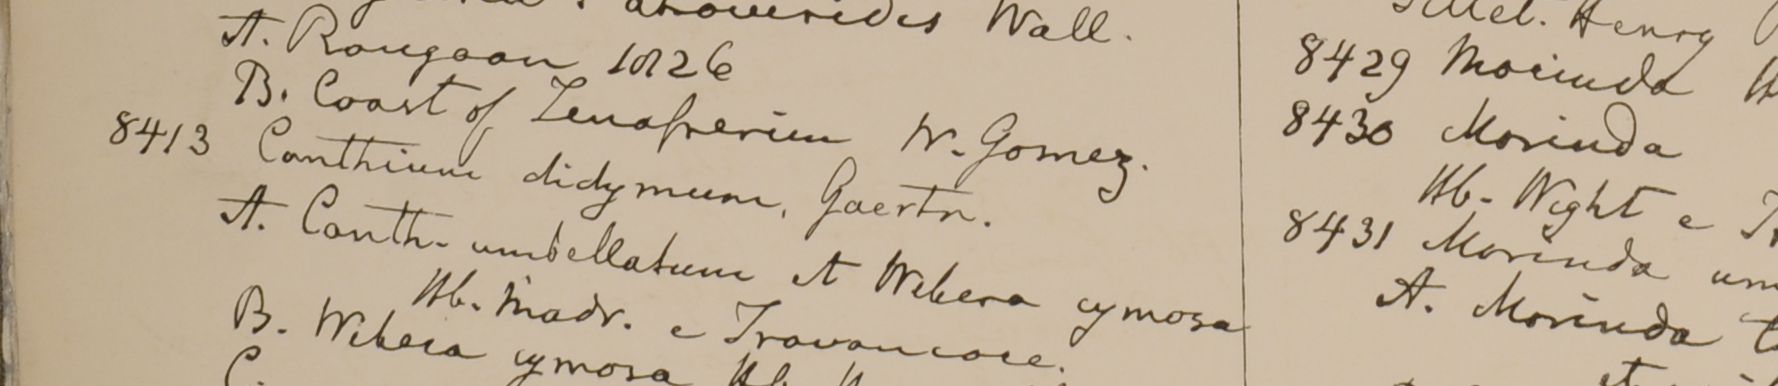 Wall.
A. Rangoon 1826
B. Coast of Tenasserim W. Gomez.
8413 Canthium didymum, Gaertn.
A. Canth. umbellatum et Webera cymosa
Hb. Madr. e Travancore.
B. Webera cymosa Hb.
C.
Henry
8429 Morinda
8430 Morinda
Hb. Wight e
8431 Morinda um
A. Morinda
et